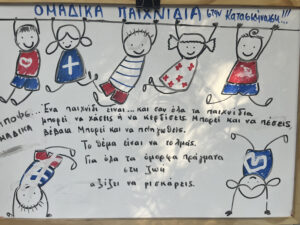 ΟΜΑΔΙΚΑ ΠΑΙΧΝΙΔΙΑ στην Κατασκήνωση!!!
ΑΠΟΨΕ...
ΟΜΑΔΙΚΑ
Ένα παιχνίδι είναι... και σαν όλα τα παιχνίδια
μπορεί να χάσεις ή να κερδίσεις. Μπορεί και να πέσεις
βέβαια. Μπορεί και να πληγωθείς.
Το θέμα είναι να τολμάς.
Για όλα τα όμορφα πράγματα
στη ζωή
αξίζει να ρισκάρεις.